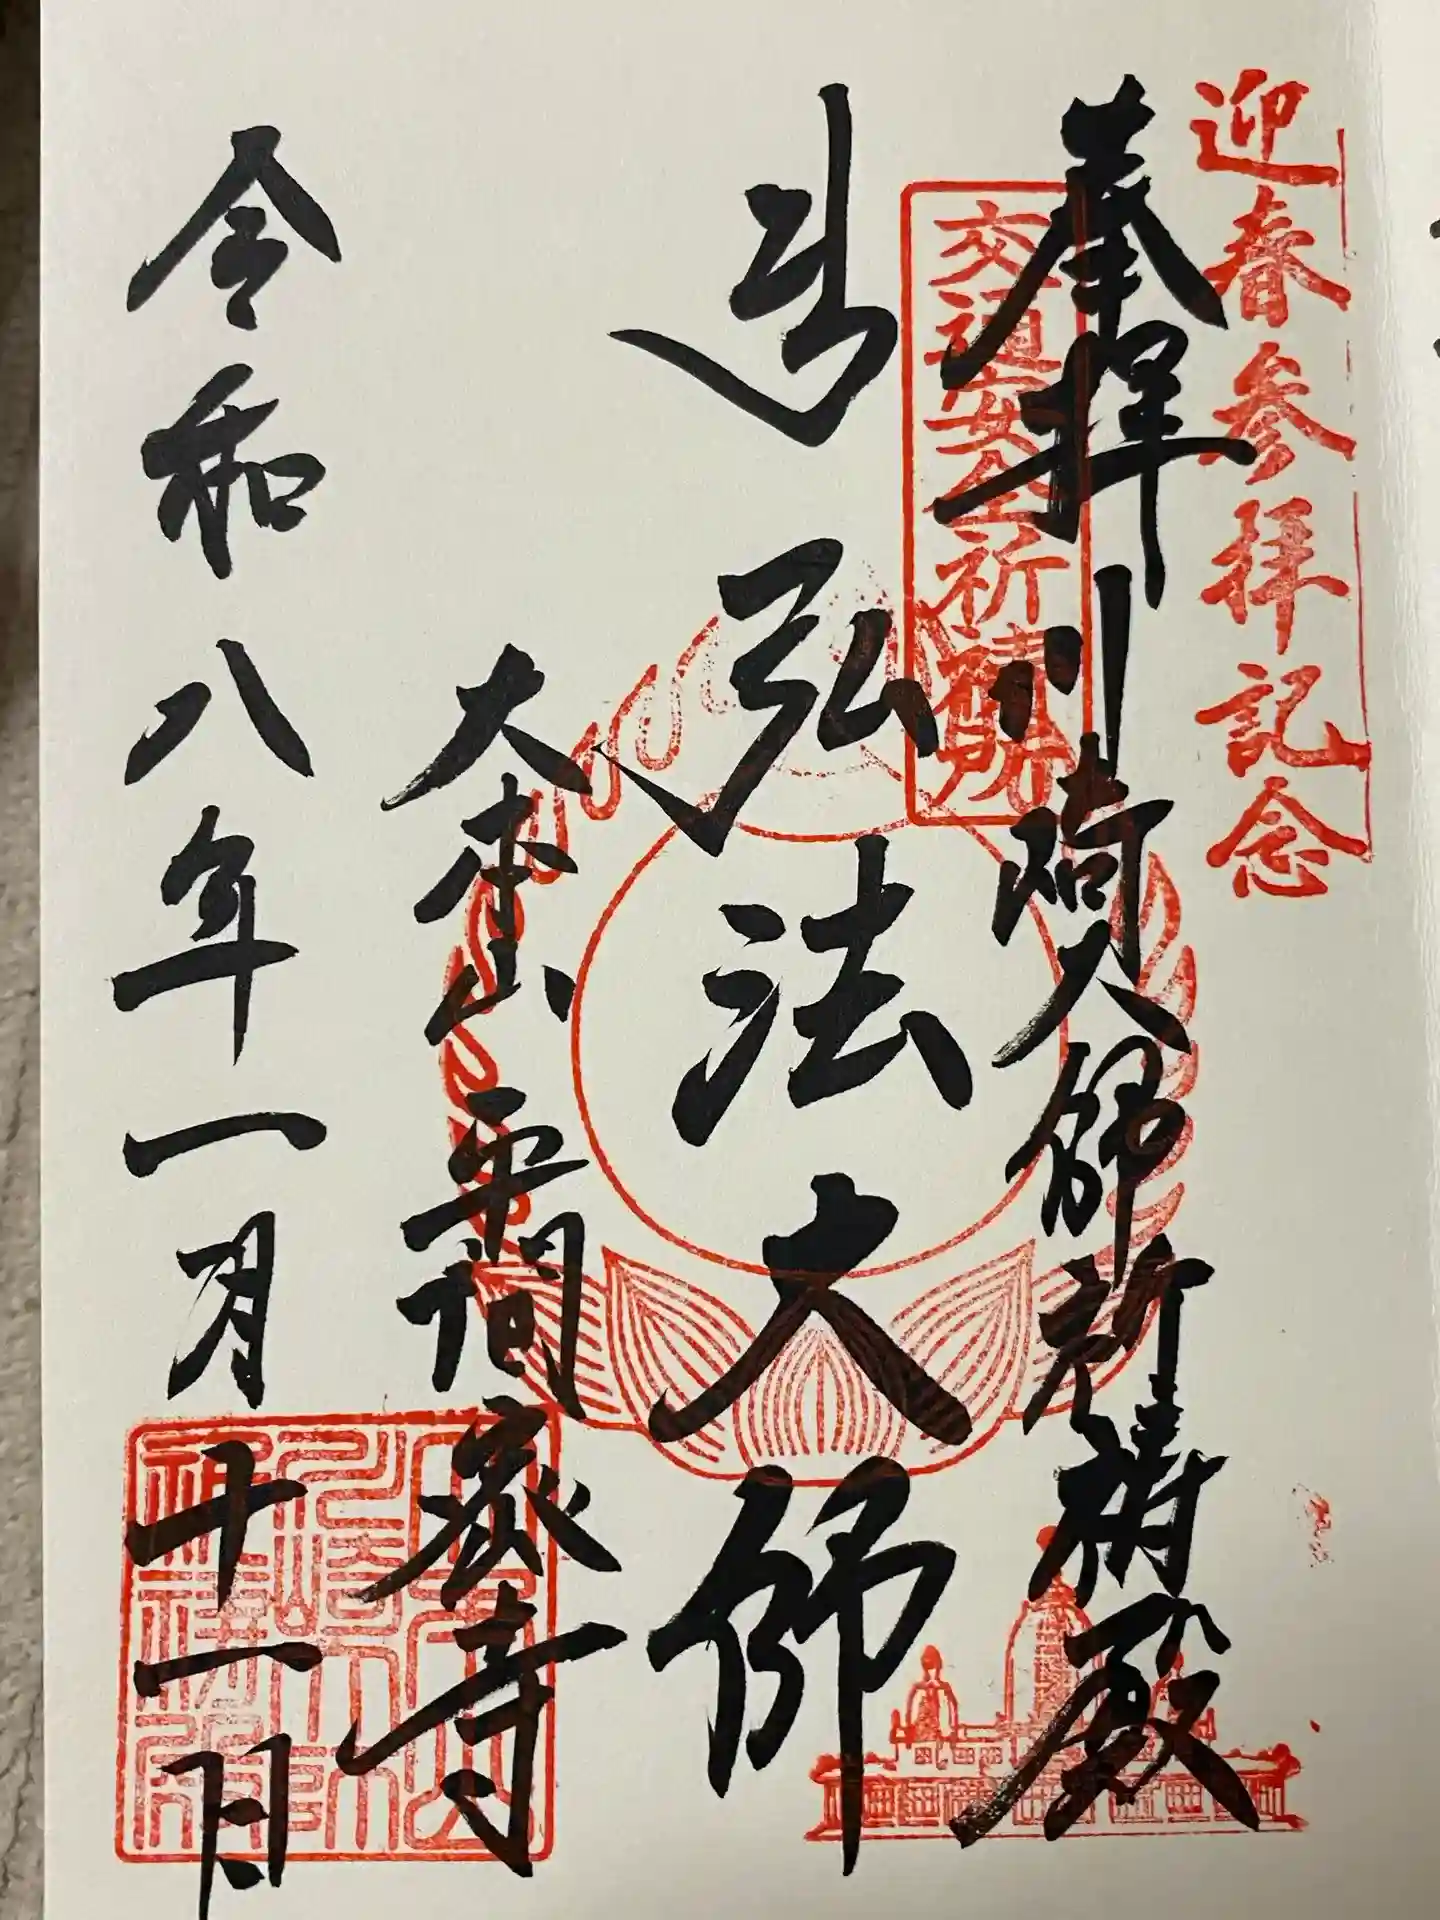 迎春参拝記念
奉拝
川崎大師祈禱殿
交通安全祈禱所
弘法大師
大本山
平間寺
令和八年一月十一日